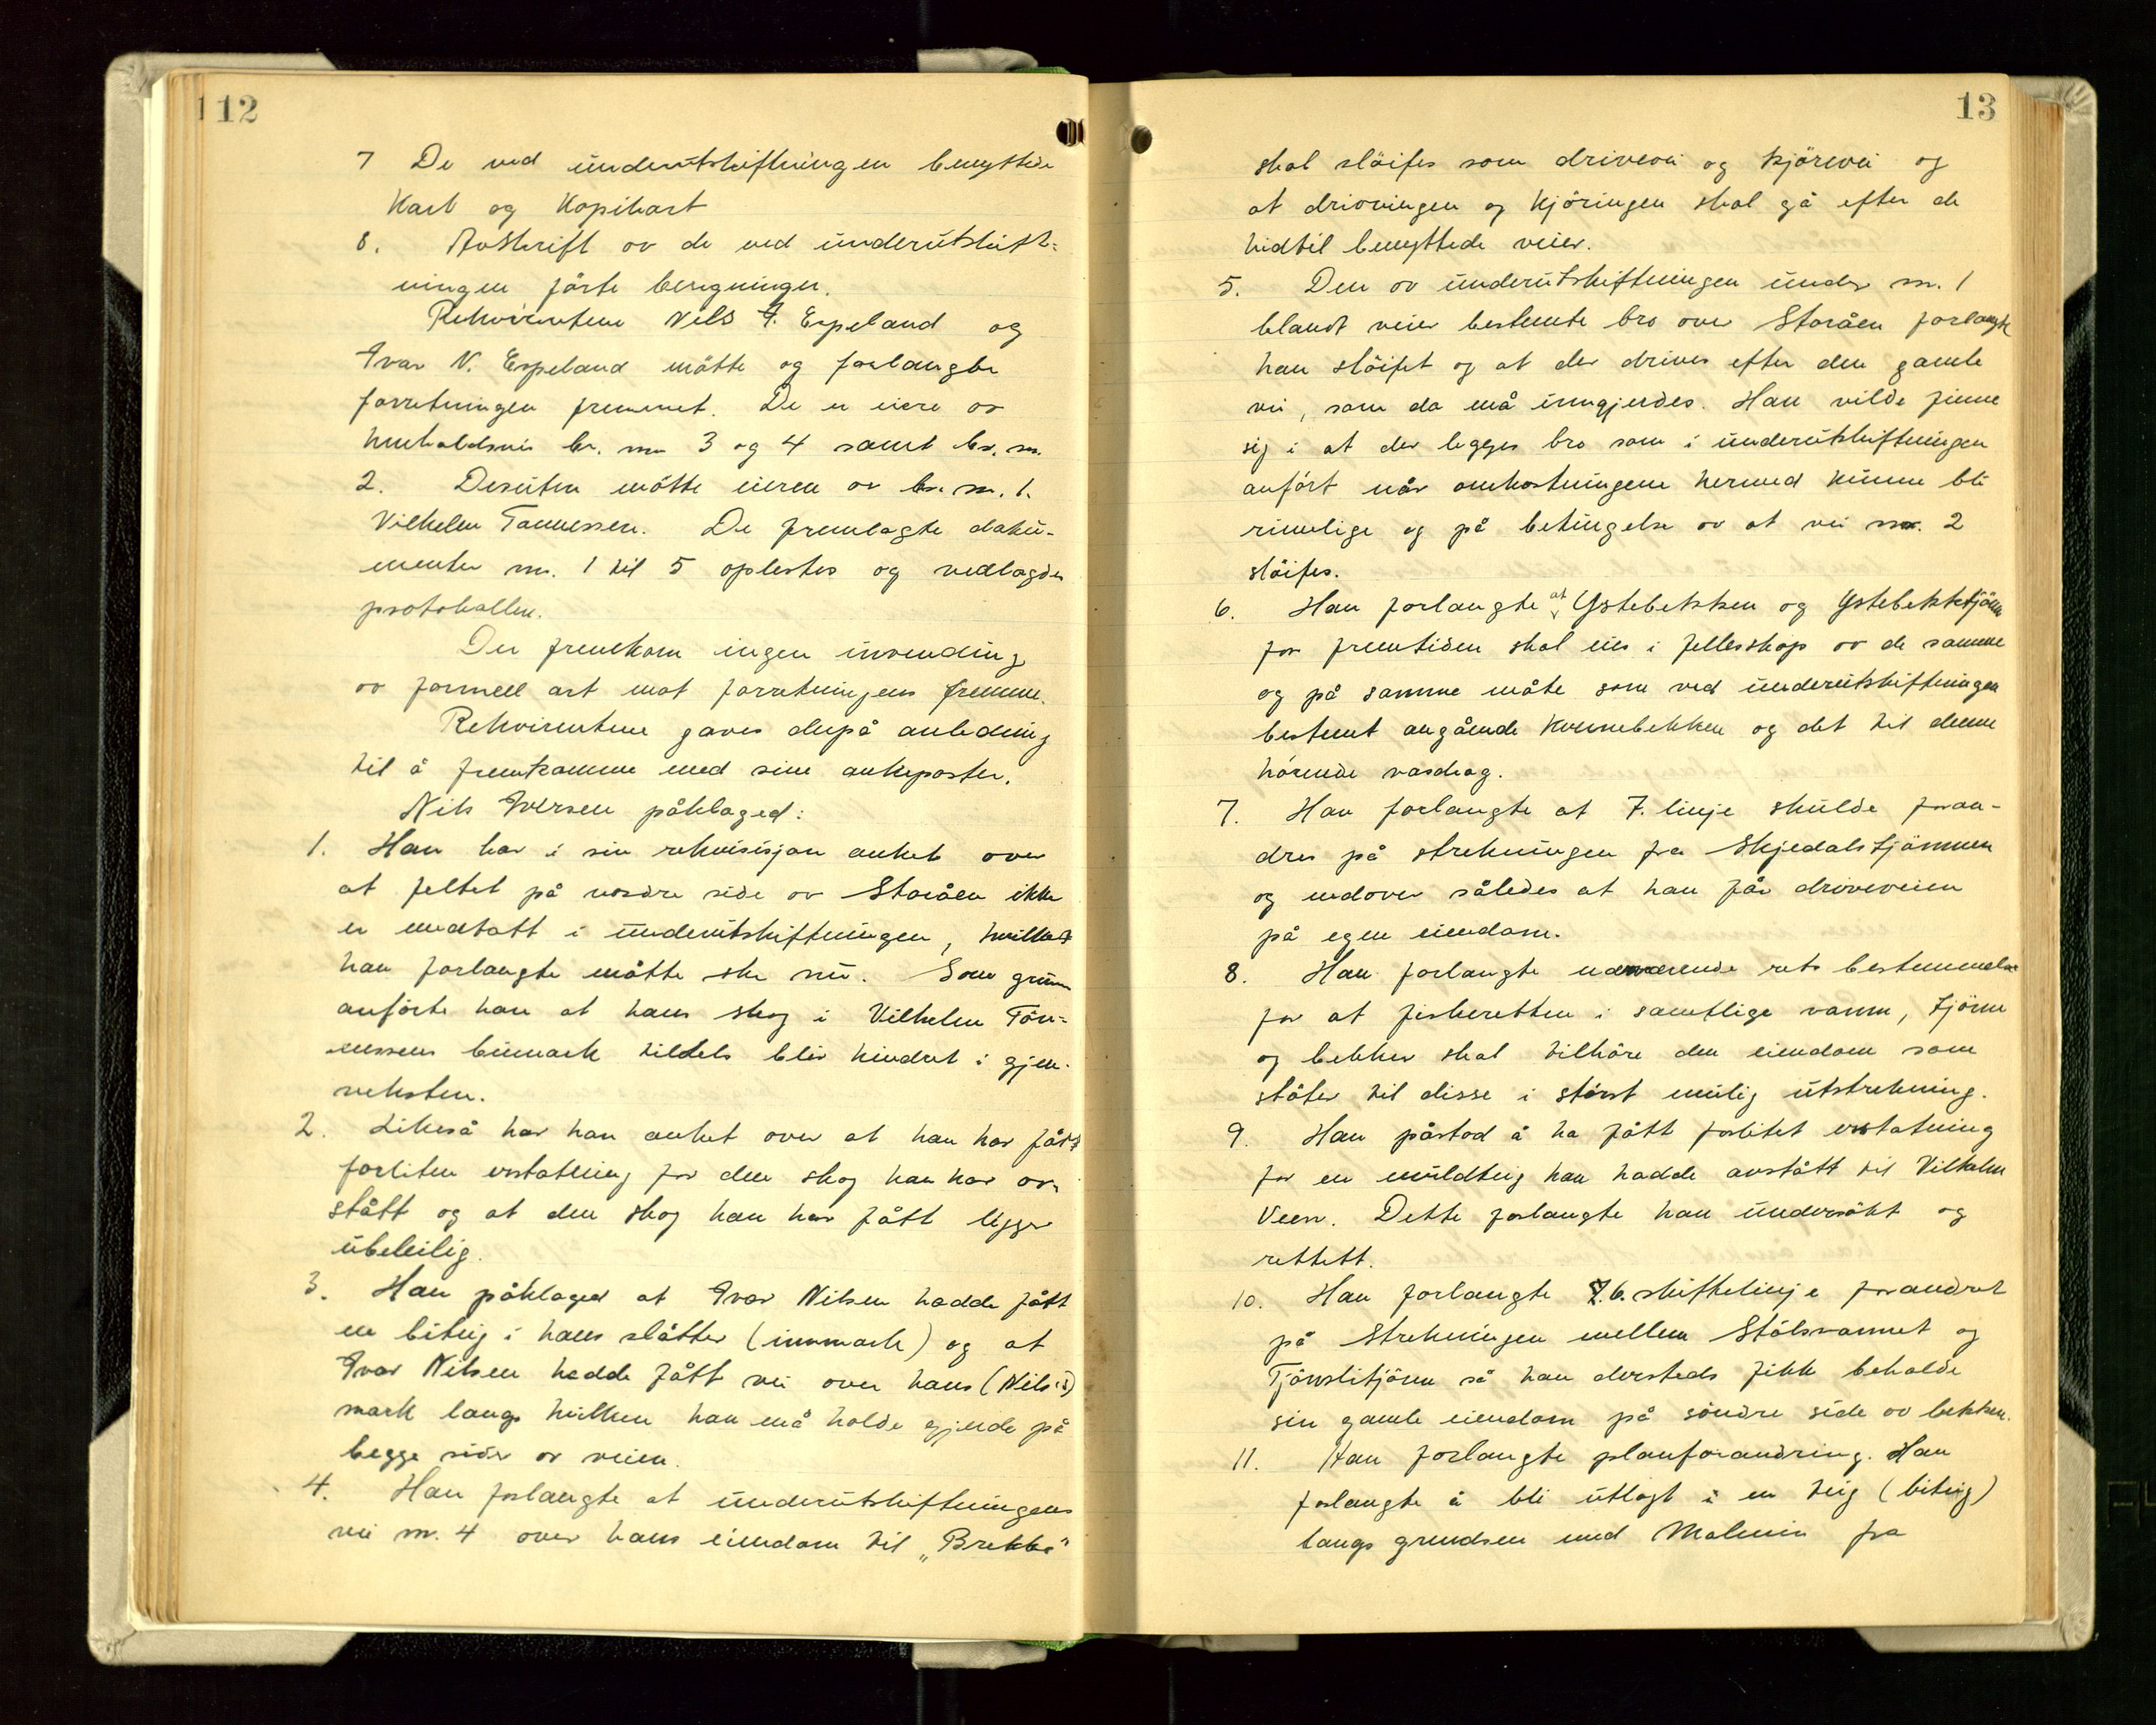 112
7 De ved underutskiftningen benyttede
Kart og Kopikart
8. Avskrift av de ved underutskift-
ningen förte beregninger.
Rekvirentene Nils I. Espeland og
Ivar N. Espeland mötte og forlangte
forretningen fremmet. De er eiere av
henholdsvis br. nr. 3 og 4 samt br. nr.
2. Desuten mötte eieren av br. nr. 1.
Vilhelm Tönnessen. De fremlagte doku-
menter nr. 1 til 5 oplestes og vedlagdes
protokollen.
Der fremkom ingen invending
av formell art mot forretningens fremme.
Rekvirentene gaves derpå anledning
til å fremkomme med sine ankeposter.
Nils Iversen påklaged:
1. Han har i sin rekvisisjon anket over
at feltet på nordre side av Storåen ikke
er medtatt i underutskiftningen, hvilket
han forlangte måtte ske nu. Som grunn
anförte han at hans skog i Vilhelm Tön-
nessens bumark tildels blir hindret i gjen-
veksten.
2. Likeså har han anket over at han har fått
forliten erstatning for den skog han har av-
stått og at den skog han har fått ligger
ubeleilig.
3. Han påklaged at Ivar Nilsen hadde fått
en biteig i hans slåtter (innmark) og at
Ivar Nilsen hadde fått vei over hans (Nils's)
mark langs hvilken han må holde gjerde på
begge sider av veien.
4. Han forlangte at underutskiftningens
vei nr. 4 over hans eiendom til „Brekka"
13
skal slöifes som drivevei og kjörevei og
at drivningen og kjöringen skal gå efter de
hidtil benyttede veier.
5. Den av underutskiftningen under nr. 1
blandt veier bestemte bro over Storåen forlangte
han slöifet og at der drives efter den gamle
vei, som da må inngjerdes. Han vilde finne
sig i at der legges bro som i underutskiftningen
anfört når omkostningene hermed kunne bli
rimelige og på betingelse av at vei nr. 2
slöifes.
6. Han forlangte at Ystebekken og Ystebekktjönn
for fremtiden skal eies i fellesskap av de samme
og på samme måte som ved underutskiftningen
bestemt angående Kvernebekken og det til denne
hörende vasdrag.
7. Han forlangte at 7. linje skulde foran-
dres på strekningen fra Skjedalstjönnen
og nedover således at han får driveveien
på egen eiendom.
8. Han forlangte nærværende rets bestemmelse
for at fiskeretten i samtlige vann, tjönn
og bekker skal tilhöre den eiendom som
stöter til disse i störst mulig utstrekning.
9. Han påstod å ha fått forlitet erstatning
for en muldteig han hadde avstått til Vilhelm
Veen. Dette forlangte han undersökt og
rettett.
10. Han forlangte 6. skiftelinje forandret
på Strekningen mellem Stölsvannet og
Tjönslitjönn så han dersteds fikk beholde
sin gamle eiendom på söndre side av bekken.
11. Han forlangte planforandring. Han
forlangte å bli utlagt i en teig (biteig)
langs grendsen med Malmin fra